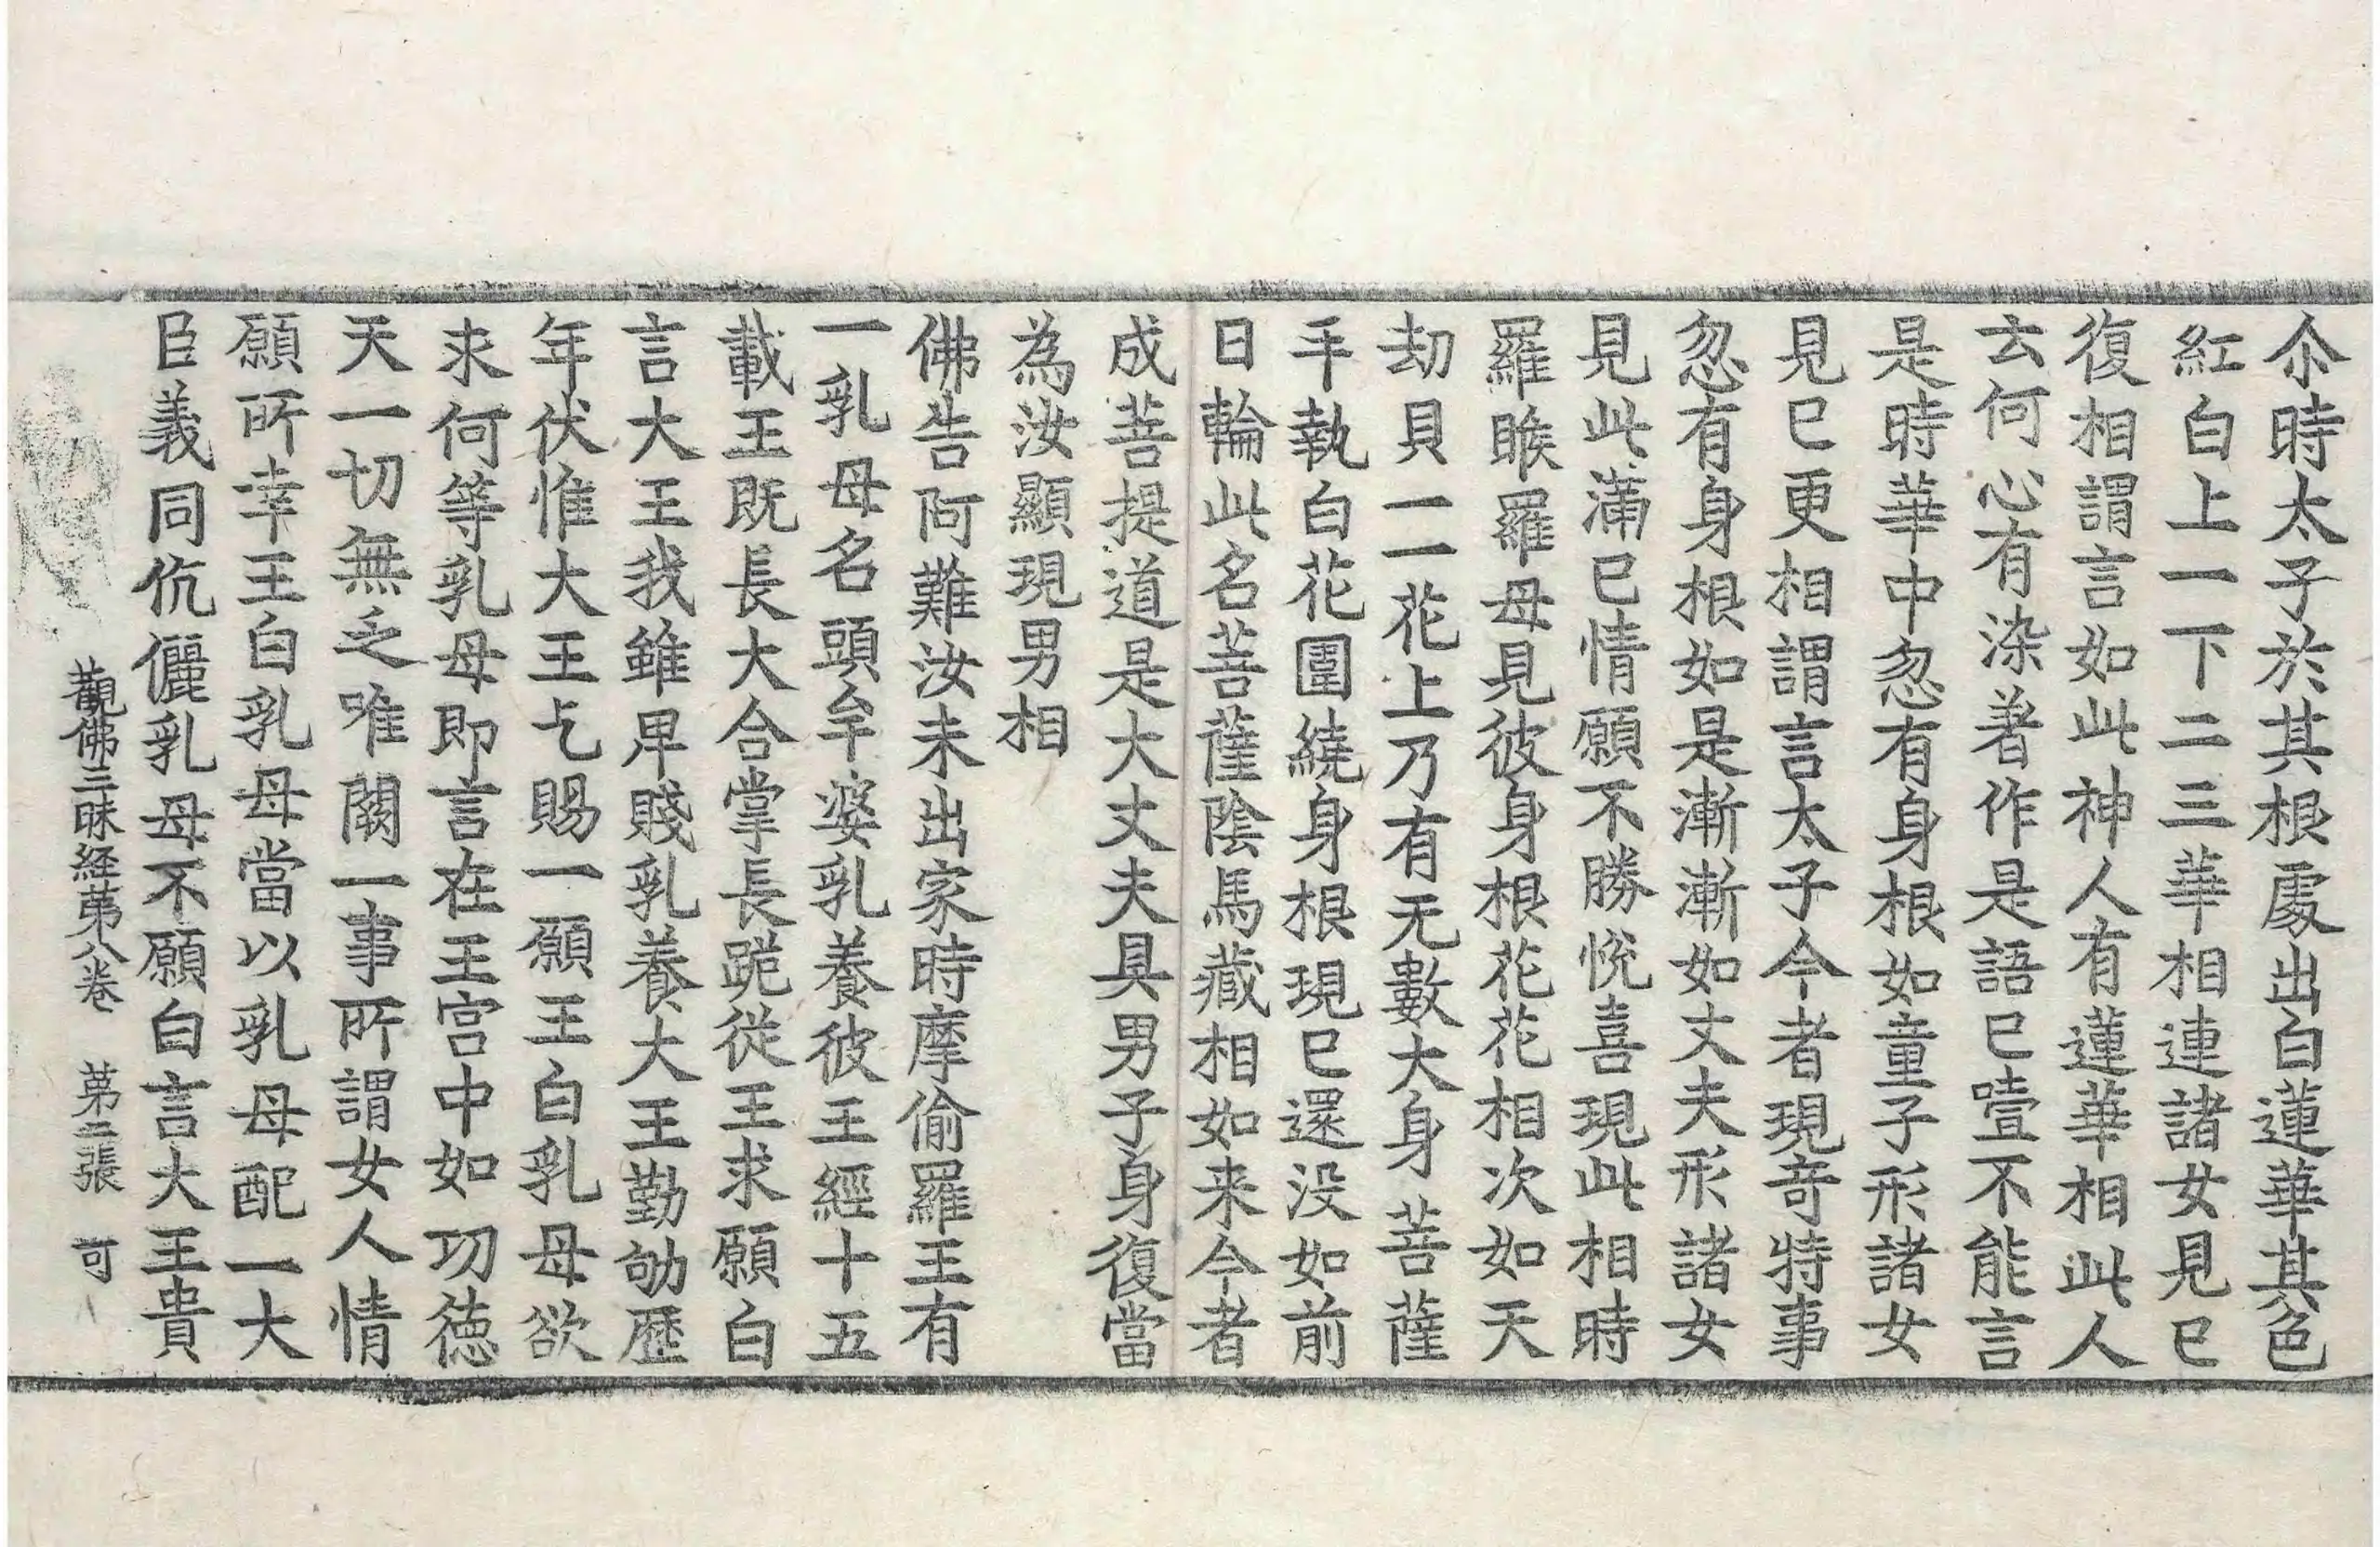 尒時太子於其根處出白蓮華其色
紅白上一下二三華相連諸女見已
復相謂言如此神人有蓮華相此人
云何心有染著作是語已噎不能言
是時華中忽有身根如童子形諸女
見已更相謂言太子今者現奇特事
忽有身根如是漸漸如丈夫形諸女
見此滿已情願不勝悅喜現此相時
羅睺羅母見彼身根花花相次如天
劫貝一一花上乃有无數大身菩薩
手執白花圍繞身根現已還没如前
日輪此名菩薩陰馬藏相如来今者
成菩提道是大丈夫具男子身復當
為汝顯現男相
佛告阿難汝未出家時摩偷羅王有
一乳母名頭牟婆乳養彼王經十五
載王既長大合掌長跪従王求願白
言大王我雖卑賤乳養大王勤劬歷
年伏惟大王乞賜一願王白乳母欲
求何等乳母即言在王宮中如㓛徳
天一切無乏唯闕一事所謂女人情
願所幸王白乳母當以乳母配一大
臣義同伉儷乳母不願白言大王貴
觀佛三昧経苐八卷 苐二張 可